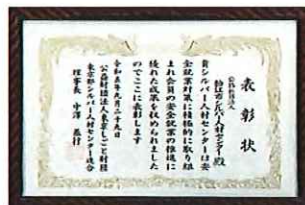 表彰状
公益社団法人
狛江市シルバー人材センター殿
貴シルバー人材センターは安
全就業対策に積極的に取り組
まれ会員の安全就業の推進に
優れた成果を収められました
のでここに表彰します
令和五年九月二十九日
公益財団法人東京しごと財団
東京都シルバー人材センター連合
理事長 中澤 基行